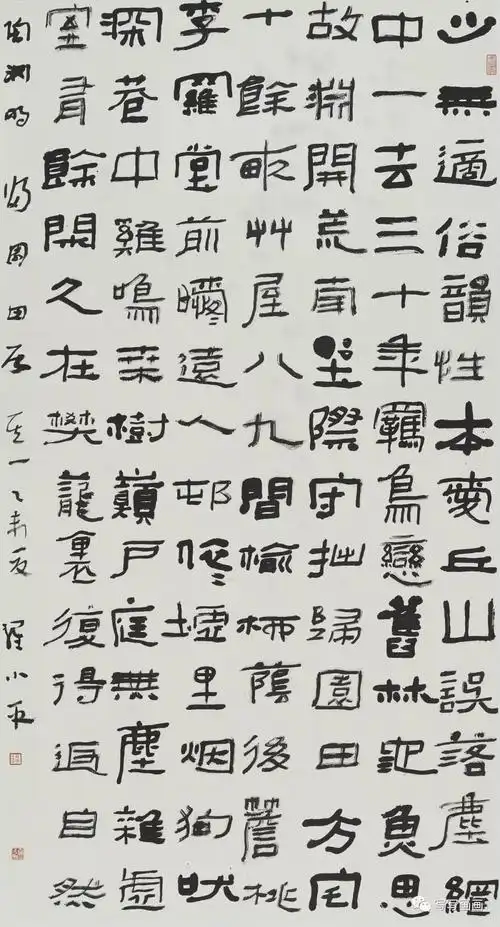 少無適俗韻性本愛丘山誤落塵網
中一去三十年羈鳥戀舊林池魚思
故淵開荒南埜際守拙歸園田方宅
十餘畝艸屋八九間榆柳蔭後簷桃
李羅堂前曖〻遠人邨依〻墟里烟狗吠
深巷中雞鳴桑樹巔戶庭無塵雜虛
室有餘閑久在樊籠裏復得返自然
陶淵明 歸園田居 其一 乙未夏 羅小平
写写画画